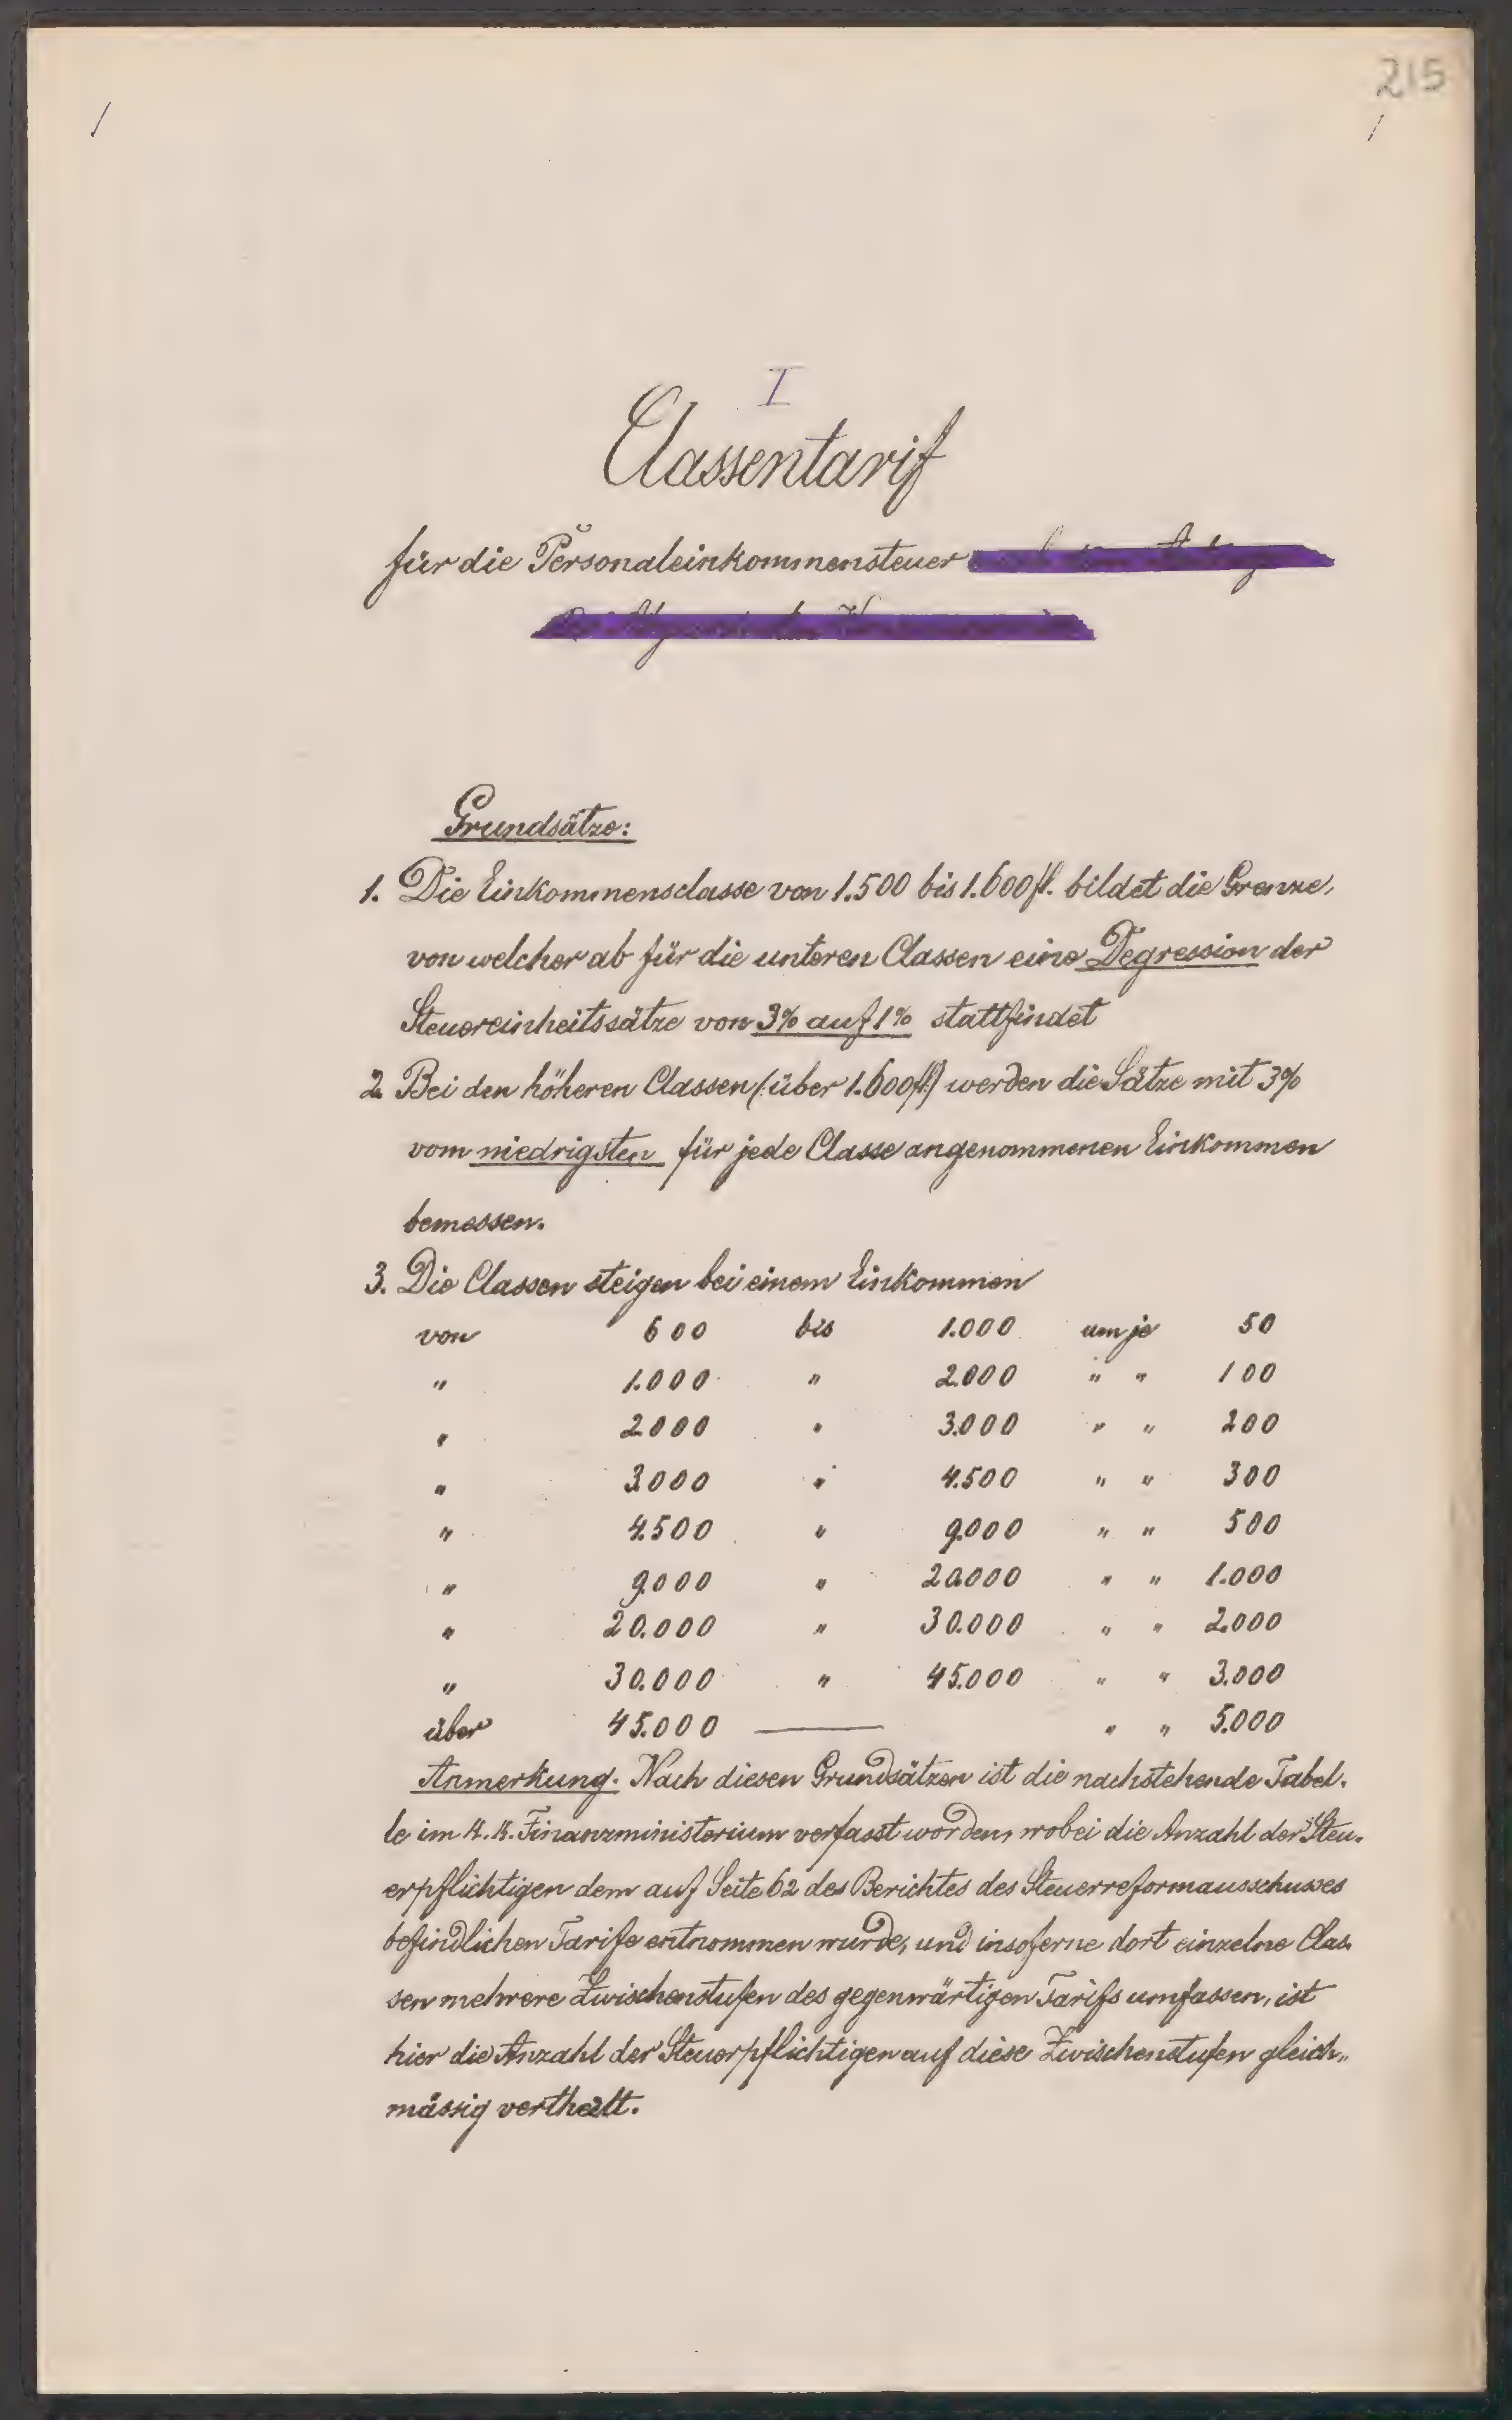 215
I
Classentarif
für die Personaleinkommensteuer
Grundsätze:
1. Die Einkommensclasse von 1.500 bis 1.600 fl. bildet die Grenze,
von welcher ab für die unteren Classen eine Degression der
Steuereinheitssätze von 3% auf 1% stattfindet
2. Bei den höheren Classen (: über 1.600 fl :) werden die Sätze mit 3%
vom niedrigsten für jede Classe angenommenen Einkommen
bemessen.
3. Die Classen steigen bei einem Einkommen
von 600 bis 1.000 um je 50
" 1.000 " 2.000 " " 100
" 2.000 " 3.000 " " 200
" 3.000 " 4.500 " " 300
" 4.500 " 9.000 " " 500
" 9.000 " 20.000 " " 1.000
" 20.000 " 30.000 " " 2.000
" 30.000 " 45.000 " " 3.000
über 45.000 — " " 5.000
Anmerkung. Nach diesen Grundsätzen ist die nachstehende Tabel-
le im k. k. Finanzministerium verfasst worden, wobei die Anzahl der Steu-
erpflichtigen dem auf Seite 62 des Berichtes des Steuerreformausschusses
befindlichen Tarife entnommen wurde, und insoferne dort einzelne Clas-
sen mehrere Zwischenstufen des gegenwärtigen Tarifs umfassen, ist
hier die Anzahl der Steuerpflichtigen auf diese Zwischenstufen gleich-
mässig vertheilt.